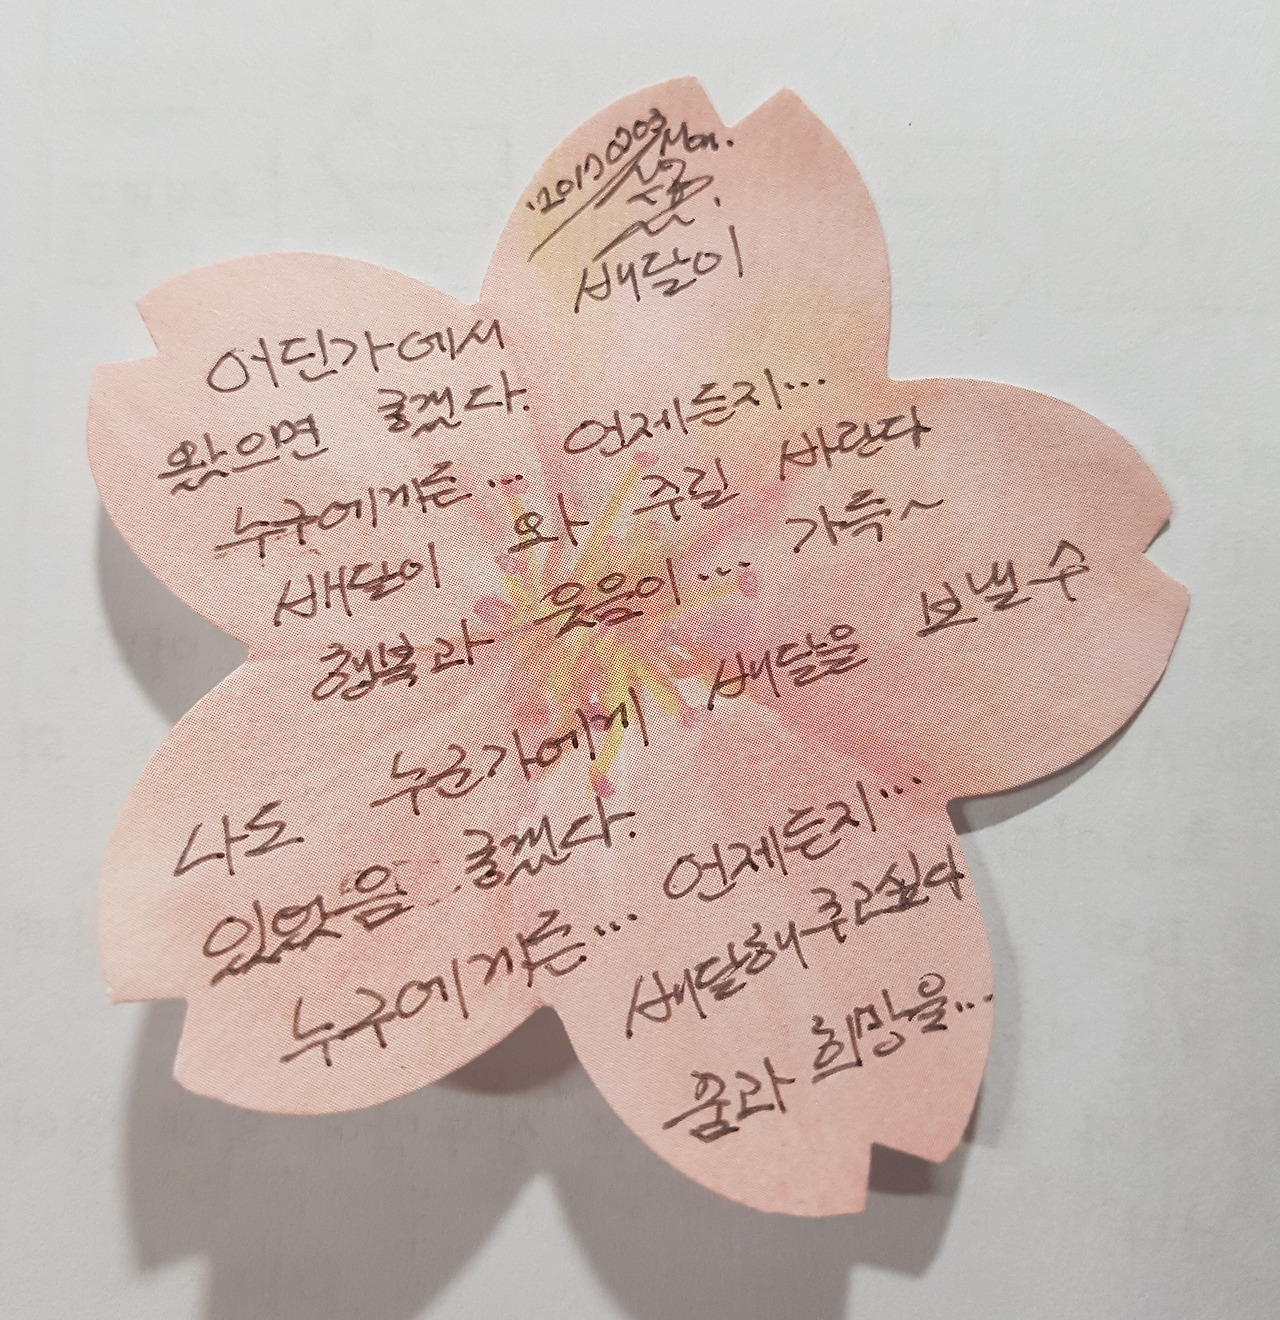 배달이
어딘가에서
왔으면 좋겠다.
누구에게든... 언제든지...
배달이 와 주길 바란다
행복과 웃음이... 가득~
나도 누군가에게 배달을 보낼 수
있었음 좋겠다.
누구에게든... 언제든지...
배달해 주고싶다
꿈과 희망을...